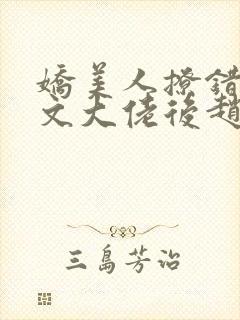 嬌美人撩錯
文大佬後趙
三島芳治